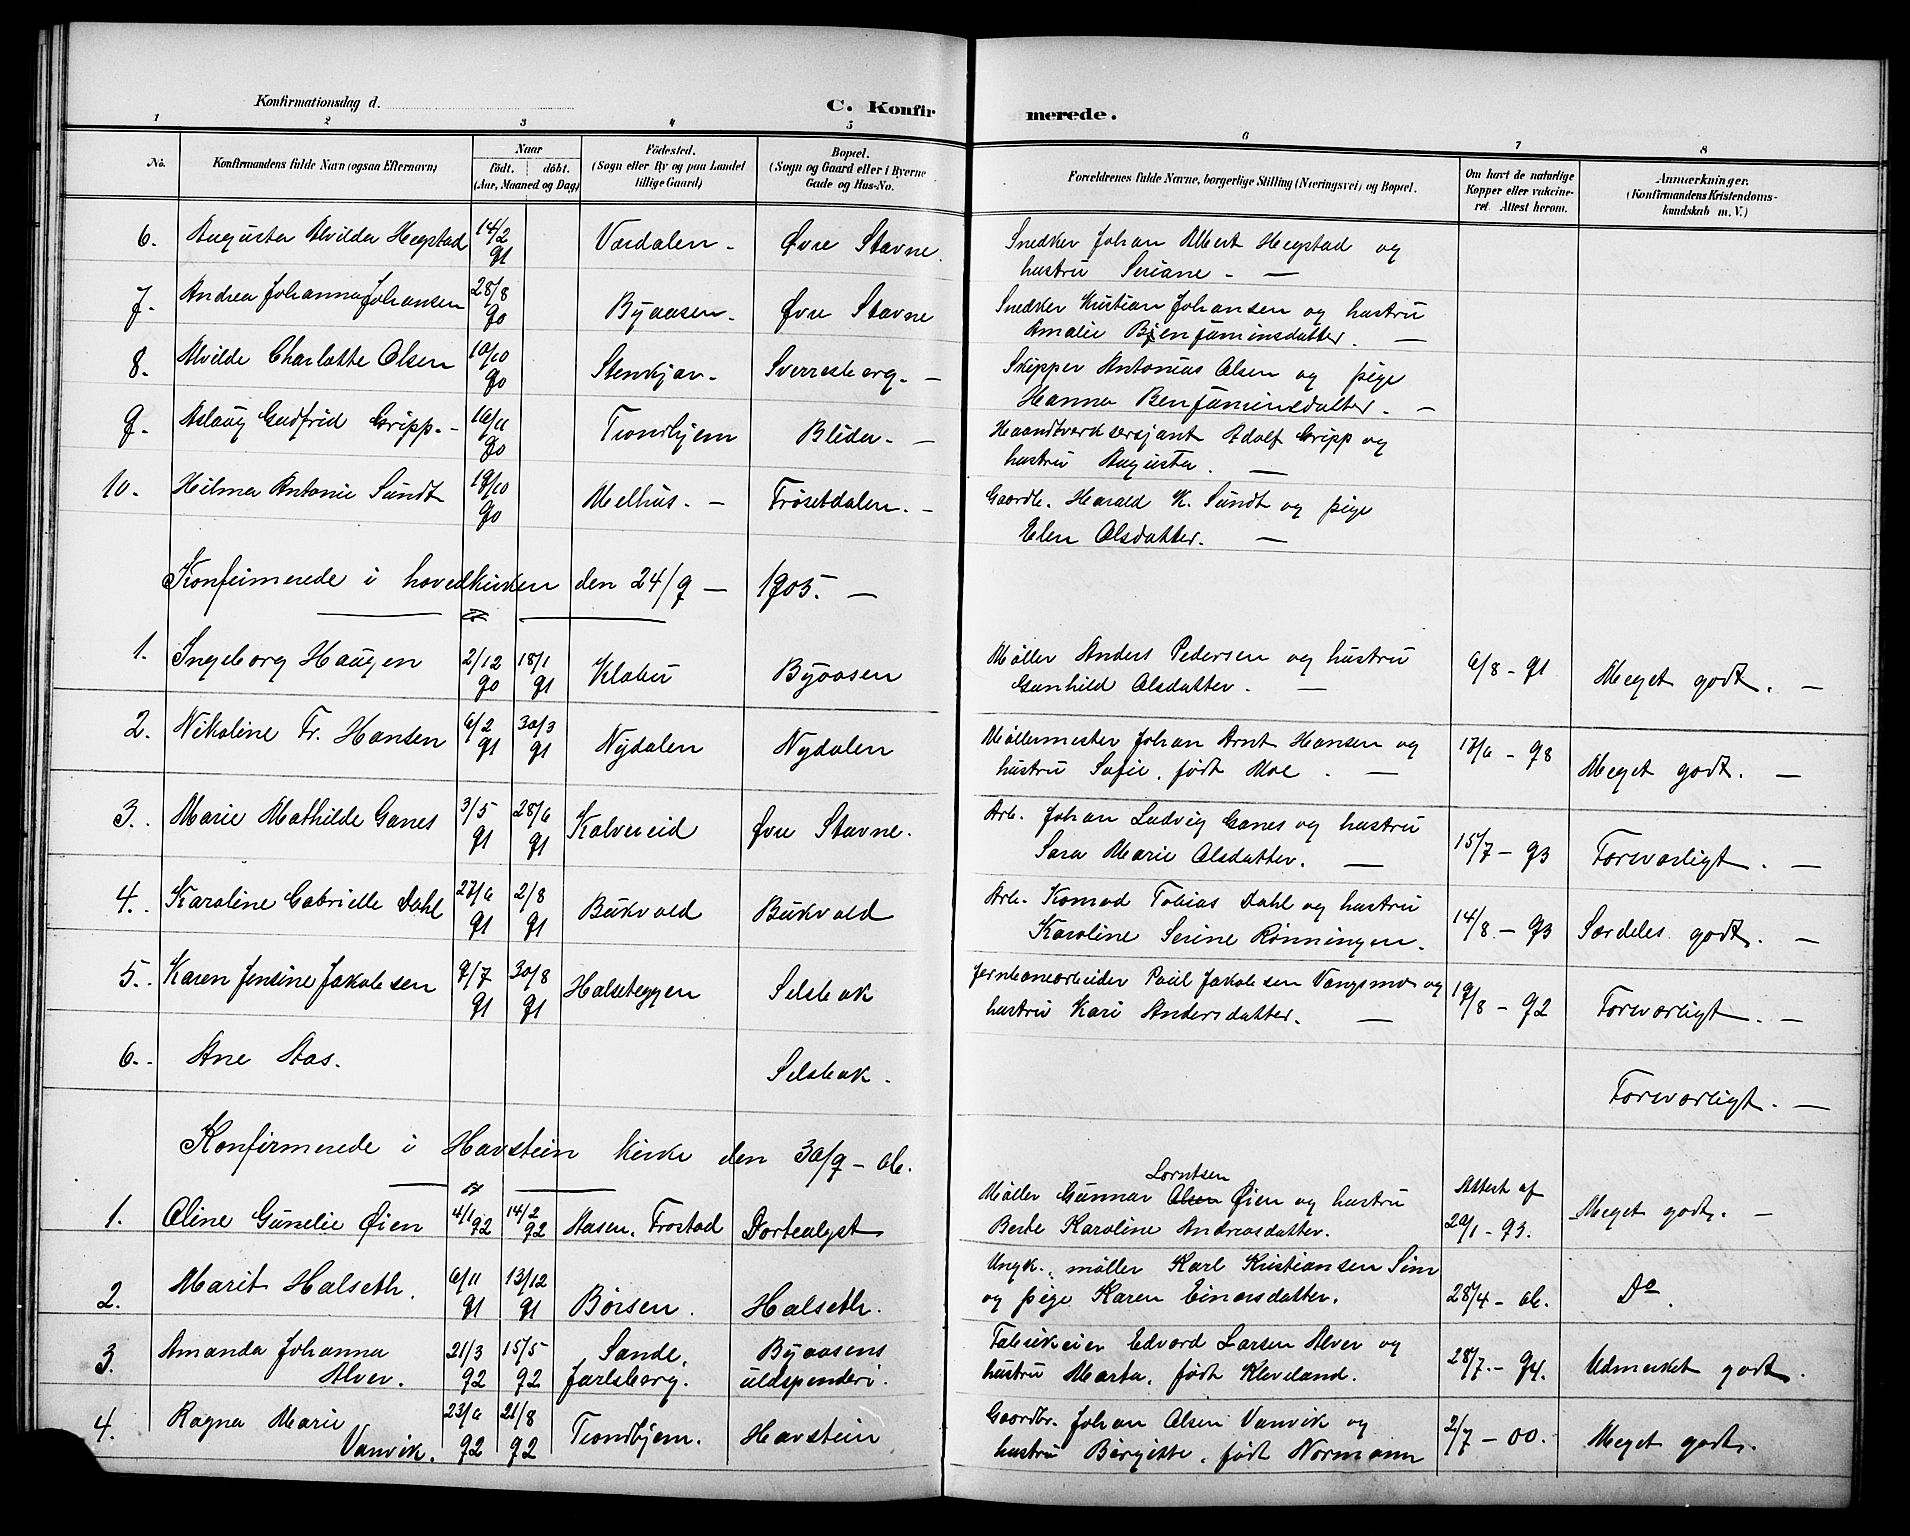 Konfirmationsdag d.
C. Konfirmerede.
1 2 3 4 5 6 7 8
No. Konfirmandens fulde Navn (ogsaa Efternavn) Naar født. døbt. (Aar, Maaned og Dag) Födested. (Sogn eller By og paa Landet tillige Gaard) Bopæl. (Sogn og Gaard eller i Byerne Gade og Hus-No. Forældrenes fulde Navne, borgerlige Stilling (Næringsvei) og Bopæl. Om havt de naturlige Kopper eller vaksineret. Attest herom. Anmærkninger. (Konfirmandens Kristendomskundskab m. V.)
6. Augusta Alvilda Hegstad 14/2 91 Værdalen - Øvre Stavne. Snedker Johan Albert Hegstad og
hustru Seriane - —
7. Andrea Johanna Johansen 28/8 90 Byaasen - Øvre Stavne Snedker Kristian Johansen og hustru
Amalie Benjaminsdatter. —
8. Alvilde Charlotte Olsen 10/10 90 Stenkjær - Sverresborg. - Skipper Antonius Olsen og pige
Hanna Benjaminsdatter. —
9. Aslaug Gudfrid Gripp. - 16/11 90 Trondhjem Blida - — Haandtverksersjant Adolf Gripp og
hustru Augusta. —
10. Hilma Antonie Sundt 19/10 90 Melhus. - Frøsetdalen. - Gaardb. Harald K. Sundt og pige
Elen Olsdatter. —
Konfirmerede i hovedkirken den 24/9 — 1905. —
1. Ingeborg Haugen 2/12 90 18/1 91 Klæbu Byaasen Møller Anders Pedersen og hustru 6/8 - 91 Meget godt. —
Gunhild Olsdatter. —
2. Nikoline Fr. Hansen 6/2 91 30/3 91 Nydalen Nydalen Møllermester Johan Arnt Hansen og 17/6 - 98 Meget godt. —
hustru Sofie, født Moe. —
3. Marie Mathilde Ganes 3/5 91 28/6 91 Kalvereid Øvre Stavne. Arb. Johan Ludvig Ganes og hustru 15/7 - 93 Forsvarligt. —
Sara Marie Olsdatter. —
4. Karoline Gabrielle Dahl 27/6 91 2/8 91 Bukvold Bukvold Arb. Konrad Tobias Dahl og hustru 14/8 - 93 Særdeles godt. —
Karoline Serine Rønningen.
5. Karen Jensine Jakobsen 9/7 91 30/8 91 Halseteggen Selsbak Jernbanearbeider Paul Jakobsen Vangsmo og 19/8 - 92 Forsvarligt. —
hustru Kari Andersdatter. —
6. Ane Aas. Selsbak. Forsvarligt. —
Konfirmerede i Havstein kirke den 30/9 - 06.
1. Oline Gunelie Øien 4/1 92 14/2 92 Aasen, Frostad Dortealyst Møller Gunnar Olsen Lorntsen Øien og hustru Attest af Meget godt. —
Berte Karoline Andreasdatter. 20/1 - 93.
2. Marit Halseth. 6/11 91 13/12 91 Børsen. Halseth. Ungk., møller Karl Kristiansen Sim
og pige Karen Einarsdatter. 28/4 - 06. Do.
3. Amanda Johanna 21/3 92 15/5 92 Sande, Byaasens Fabrikeier Edvard Larsen Alver og 28/7. - 94. Udmerket godt.
Alver. Jarlsberg. uldspenderi. hustru Marta, født Kleveland.
4. Ragna Marie 23/6 92 21/8 92 Trondhjem. Havstein Gaardbr. Johan Olsen Vanvik og 2/7 - 00. Meget godt.
Vanvik. hustru Birgitte, født Normann